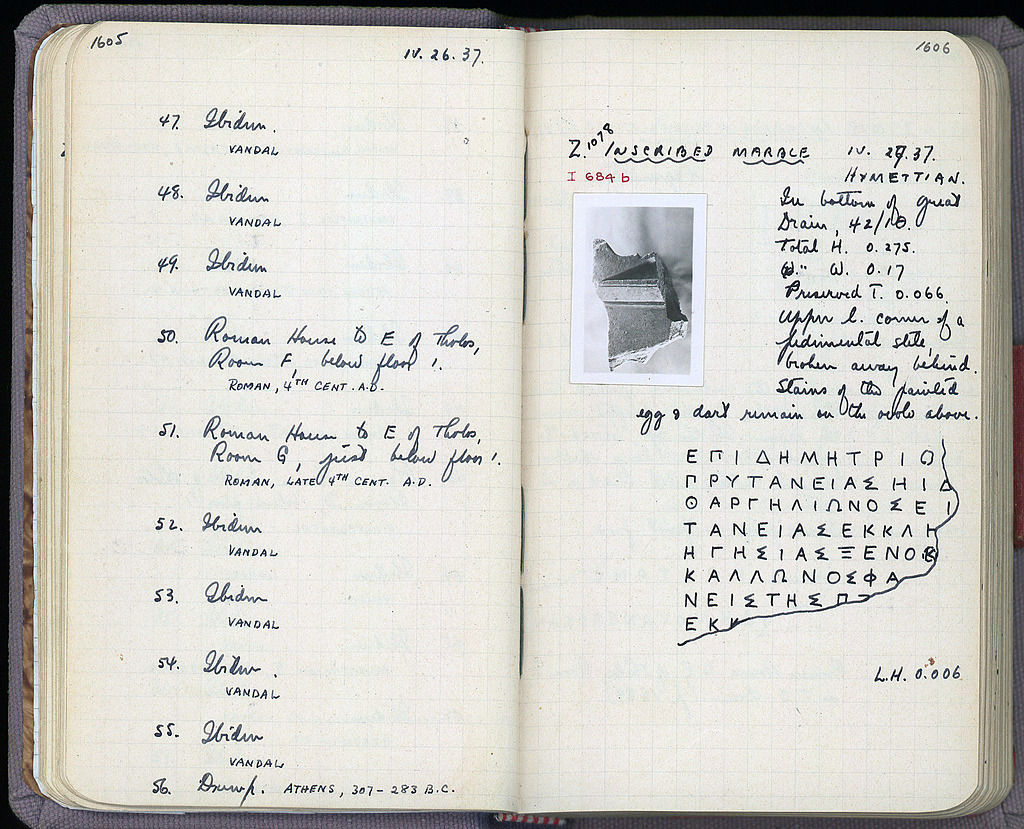 1605
IV. 26. 37.
47. Ibidem.
VANDAL
48. Ibidem
VANDAL
49. Ibidem
VANDAL
50. Roman House to E of Tholos,
Room F, below floor 1.
ROMAN, 4TH CENT. A.D.
51. Roman House to E of Tholos,
Room G, just below floor 1.
ROMAN, LATE 4TH CENT. A.D.
52. Ibidem
VANDAL
53. Ibidem
VANDAL
54. Ibidem.
VANDAL
55. Ibidem
VANDAL
56. Dump. ATHENS, 307-283 B.C.
1606
Z.1078 INSCRIBED MARBLE IV. 27.37.
I 684 b
HYMETTIAN.
In bottom of great
Drain, 42/ΙΘ.
Total H. 0.275.
" W. 0.17
Preserved T. 0.066
Upper l. corner of a
pedimental stele,
broken away behind.
Stains of the painted
egg & dart remain on the ovolo above.
ΕΠΙΔΗΜΗΤΡΙΟ
ΠΡΥΤΑΝΕΙΑΣΗΙΔ
ΘΑΡΓΗΛΙΩΝΟΣΕΙ
ΤΑΝΕΙΑΣΕΚΚΛΗ
ΗΓΗΣΙΑΣΞΕΝΟΚ
ΚΑΛΛΩΝΟΣΦΑ
ΝΕΙΣΤΗΣ
ΕΚΚ
L.H. 0.006